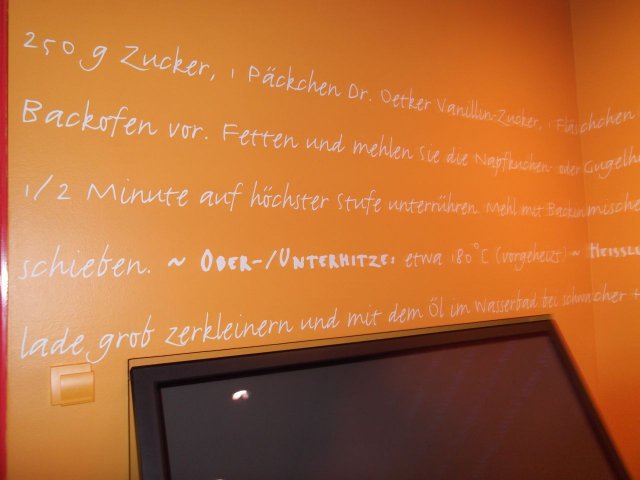 250 g Zucker, 1 Päckchen Dr. Oetker Vanillin-Zucker, 1 Fläschchen
Backofen vor. Fetten und mehlen Sie die Napfkuchen- oder
1/2 Minute auf höchster Stufe unterrühren. Mehl mit Backin mischen
schieben. ~ OBER-/UNTERHITZE: etwa 180°C (vorgeheizt) ~
lade grob zerkleinern und mit dem Öl im Wasserbad bei schwacher